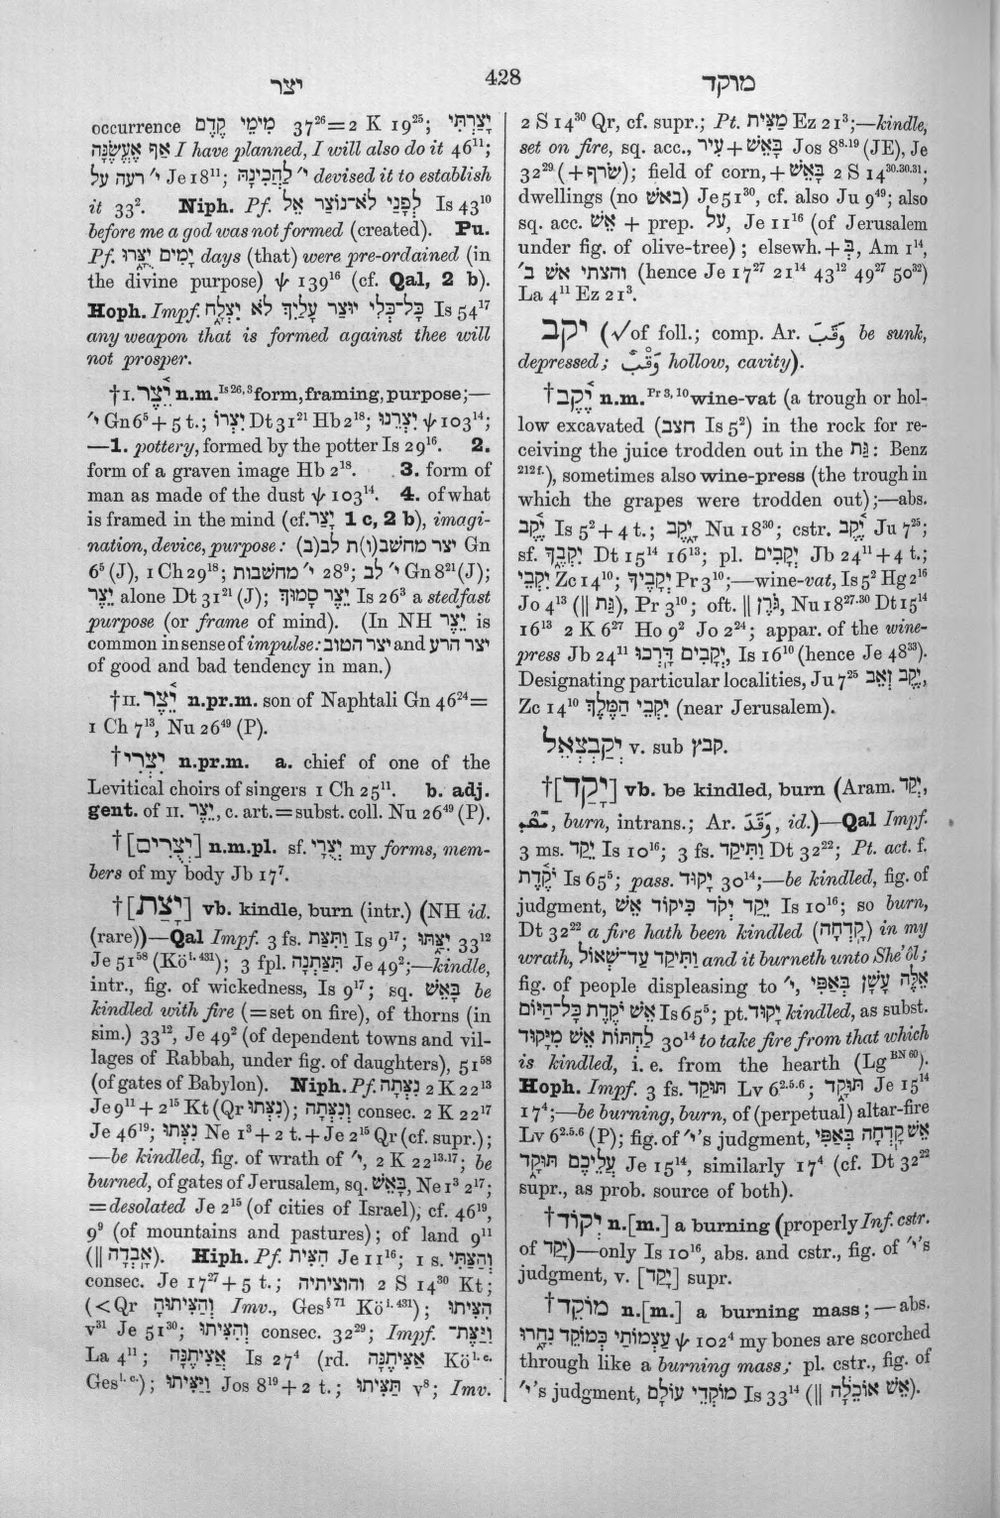 יצר 428 מוקד
occurrence מִימֵי קֶדֶם 37²⁶=2 K 19²⁵; יָצַרְתִּי
אַף אֶעֱשֶׂנָּה I have planned, I will also do it 46¹¹;
י׳ רעה על Je 18¹¹; י׳ לַהֲכִינָהּ devised it to establish
it 33². Niph. Pf. לְפָנַי לֹא־נוֹצַר אֵל Is 43¹⁰
before me a god was not formed (created). Pu.
Pf. יָמִים יֻצָּ֑רוּ days (that) were pre-ordained (in
the divine purpose) ψ 139¹⁶ (cf. Qal, 2 b).
Hoph. Impf. כָּל־כְּלִי יוּצַר עָלַיִךְ לֹא יִצְלָח Is 54¹⁷
any weapon that is formed against thee will
not prosper.
†I. יֵ֫צֶר n.m. Is 26, 3 form, framing, purpose;—
י׳ Gn 6⁵ + 5 t.; יִצְרוֹ Dt 31²¹ Hb 2¹⁸; יִצְרֵנוּ ψ 103¹⁴;
—1. pottery, formed by the potter Is 29¹⁶. 2.
form of a graven image Hb 2¹⁸. 3. form of
man as made of the dust ψ 103¹⁴. 4. of what
is framed in the mind (cf. יָצַר 1 c, 2 b), imagi-
nation, device, purpose: יצר מחשב(ו)ת לב(ב) Gn
6⁵ (J), 1 Ch 29¹⁸; י׳ מחשבות 28⁹; י׳ לב Gn 8²¹ (J);
יֵצֶר alone Dt 31²¹ (J); יֵצֶר סָמוּךְ Is 26³ a stedfast
purpose (or frame of mind). (In NH יֵצֶר is
common in sense of impulse: יצר הטוב and יצר הרע
of good and bad tendency in man.)
†II. יֵ֫צֶר n.pr.m. son of Naphtali Gn 46²⁴=
1 Ch 7¹³, Nu 26⁴⁹ (P).
†יִצְרִי n.pr.m. a. chief of one of the
Levitical choirs of singers 1 Ch 25¹¹. b. adj.
gent. of II. יֵצֶר, c. art.=subst. coll. Nu 26⁴⁹ (P).
†[יְצֻרִים] n.m.pl. sf. יְצֻרַי my forms, mem-
bers of my body Jb 17⁷.
†[יָצַת] vb. kindle, burn (intr.) (NH id.
(rare))—Qal Impf. 3 fs. וַתִּצַּת Is 9¹⁷; יִצַּ֑תּוּ 33¹²
Je 51⁵⁸ (Kö¹·⁴³¹); 3 fpl. תִּצַּתְנָה Je 49²;—kindle,
intr., fig. of wickedness, Is 9¹⁷; sq. בָּאֵשׁ be
kindled with fire (=set on fire), of thorns (in
sim.) 33¹², Je 49² (of dependent towns and vil-
lages of Rabbah, under fig. of daughters), 51⁵⁸
(of gates of Babylon). Niph. Pf. נִצְּתָה 2 K 22¹³
Je 9¹¹ + 2¹⁵ Kt (Qr נִצְּתוּ); וְנִצְּתָה consec. 2 K 22¹⁷
Je 46¹⁹; נִצְּתוּ Ne 1³ + 2 t. + Je 2¹⁵ Qr (cf. supr.);
—be kindled, fig. of wrath of י׳, 2 K 22¹³·¹⁷; be
burned, of gates of Jerusalem, sq. בָּאֵשׁ, Ne 1³ 2¹⁷;
=desolated Je 2¹⁵ (of cities of Israel); cf. 46¹⁹,
9⁹ (of mountains and pastures); of land 9¹¹
(|| אָבְדָה). Hiph. Pf. הִצִּית Je 11¹⁶; 1 s. וְהִצַּתִּי
consec. Je 17²⁷ + 5 t.; והוציתיה 2 S 14³⁰ Kt;
(<Qr וְהַצִּיתוּהָ Imv., Ges§⁷¹ Kö¹·⁴³¹); הִצִּיתוּ
v³¹ Je 51³⁰; וְהִצִּיתוּ consec. 32²⁹; Impf. וַיַּצֶּת־
La 4¹¹; אֲצִיתֶנָּה Is 27⁴ (rd. אַצִּיתֶנָּה Kö¹·ᶜ·
Gesˡ·ᶜ·); וַיַּצִּיתוּ Jos 8¹⁹ + 2 t.; תַּצִּיתוּ v⁸; Imv.
2 S 14³⁰ Qr, cf. supr.; Pt. מַצִּית Ez 21³;—kindle,
set on fire, sq. acc., בָּאֵשׁ + עִיר Jos 8⁸·¹⁹ (JE), Je
32²⁹ (+שׂרף); field of corn, + בָּאֵשׁ 2 S 14³⁰·³⁰·³¹;
dwellings (no באשׁ) Je 51³⁰, cf. also Ju 9⁴⁹; also
sq. acc. אֵשׁ + prep. עַל, Je 11¹⁶ (of Jerusalem
under fig. of olive-tree); elsewh. + בְּ, Am 1¹⁴,
והצתי אשׁ ב׳ (hence Je 17²⁷ 21¹⁴ 43¹² 49²⁷ 50³²)
La 4¹¹ Ez 21³.
יקב (√of foll.; comp. Ar. وَقَبَ be sunk,
depressed; وَقْبٌ hollow, cavity).
†יֶ֫קֶב n.m. Pr 3, 10 wine-vat (a trough or hol-
low excavated (חצב Is 5²) in the rock for re-
ceiving the juice trodden out in the גַּת: Benz
212 f.), sometimes also wine-press (the trough in
which the grapes were trodden out);—abs.
יֶקֶב Is 5² + 4 t.; יָ֑קֶב Nu 18³⁰; cstr. יֶקֶב Ju 7²⁵;
sf. יִקְבֶךָ Dt 15¹⁴ 16¹³; pl. יְקָבִים Jb 24¹¹ + 4 t.;
יִקְבֵי Zc 14¹⁰; יְקָבֶיךָ Pr 3¹⁰;—wine-vat, Is 5² Hg 2¹⁶
Jo 4¹³ (|| גַּת), Pr 3¹⁰; oft. || גֹּרֶן, Nu 18²⁷·³⁰ Dt 15¹⁴
16¹³ 2 K 6²⁷ Ho 9² Jo 2²⁴; appar. of the wine-
press Jb 24¹¹ יְקָבִים דָּרְכוּ, Is 16¹⁰ (hence Je 48³³).
Designating particular localities, Ju 7²⁵ יֶקֶב זְאֵב,
Zc 14¹⁰ יִקְבֵי הַמֶּלֶךְ (near Jerusalem).
יְקַבְצְאֵל v. sub קבץ.
†[יָקַד] vb. be kindled, burn (Aram. יְקַד,
ܝܩܕ, burn, intrans.; Ar. وَقَدَ, id.)—Qal Impf.
3 ms. יֵקַד Is 10¹⁶; 3 fs. וַתִּיקַד Dt 32²²; Pt. act. f.
יֹקֶדֶת Is 65⁵; pass. יָקוּד 30¹⁴;—be kindled, fig. of
judgment, יֵקַד יְקֹד כִּיקוֹד אֵשׁ Is 10¹⁶; so burn,
Dt 32²² a fire hath been kindled (קָֽדְחָה) in my
wrath, וַתִּיקַד עַד־שְׁאוֹל and it burneth unto She'ôl;
fig. of people displeasing to י׳, אֵלֶּה עָשָׁן בְּאַפִּי,
אֵשׁ יֹקֶדֶת כָּל־הַיּוֹם Is 65⁵; pt. יָקוּד kindled, as subst.
לַחְתּוֹת אֵשׁ מִיָּקוּד 30¹⁴ to take fire from that which
is kindled, i. e. from the hearth (Lg BN 60).
Hoph. Impf. 3 fs. תּוּקַד Lv 6²·⁵·⁶; תּוּקָ֑ד Je 15¹⁴
17⁴;—be burning, burn, of (perpetual) altar-fire
Lv 6²·⁵·⁶ (P); fig. of י׳'s judgment, אֵשׁ קָֽדְחָה בְאַפִּי
עֲלֵיכֶם תּוּקָ֑ד Je 15¹⁴, similarly 17⁴ (cf. Dt 32²²
supr., as prob. source of both).
†יְקוֹד n.[m.] a burning (properly Inf. cstr.
of יָקַד)—only Is 10¹⁶, abs. and cstr., fig. of י׳'s
judgment, v. [יָקַד] supr.
†מוֹקֵד n.[m.] a burning mass;—abs.
עַצְמוֹתַי כְּמוֹקֵד נִחָ֑רוּ ψ 102⁴ my bones are scorched
through like a burning mass; pl. cstr., fig. of
י׳'s judgment, מוֹקְדֵי עוֹלָם Is 33¹⁴ (|| אֵשׁ אוֹכֵלָה).